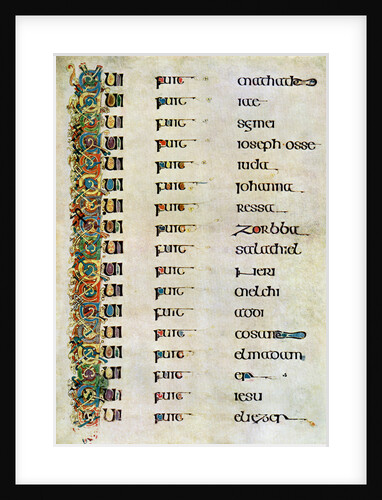 QUI fuit mathathiae
QUI fuit iae
QUI fuit semei
QUI fuit ioseph · osse
QUI fuit iuda
QUI fuit iohanna
QUI fuit ressa
QUI fuit zorbba
QUI fuit salathiel
QUI fuit neri
QUI fuit melchi
QUI fuit addi
QUI fuit cosam
QUI fuit elmadam
QUI fuit er
QUI fuit iesu
QUI fuit eliezer